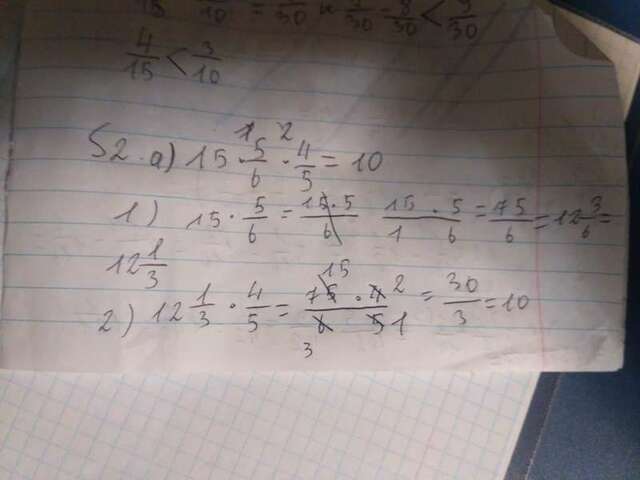 4/15 < 3/10
52. а) 15 · 5/6 · 4/5 = 10
1) 15 · 5/6 = 15·5/6 15/1 · 5/6 = 75/6 = 12 3/6 =
12 1/3
2) 12 1/3 · 4/5 = 75 · 4/6 · 5 = 30/3 = 10